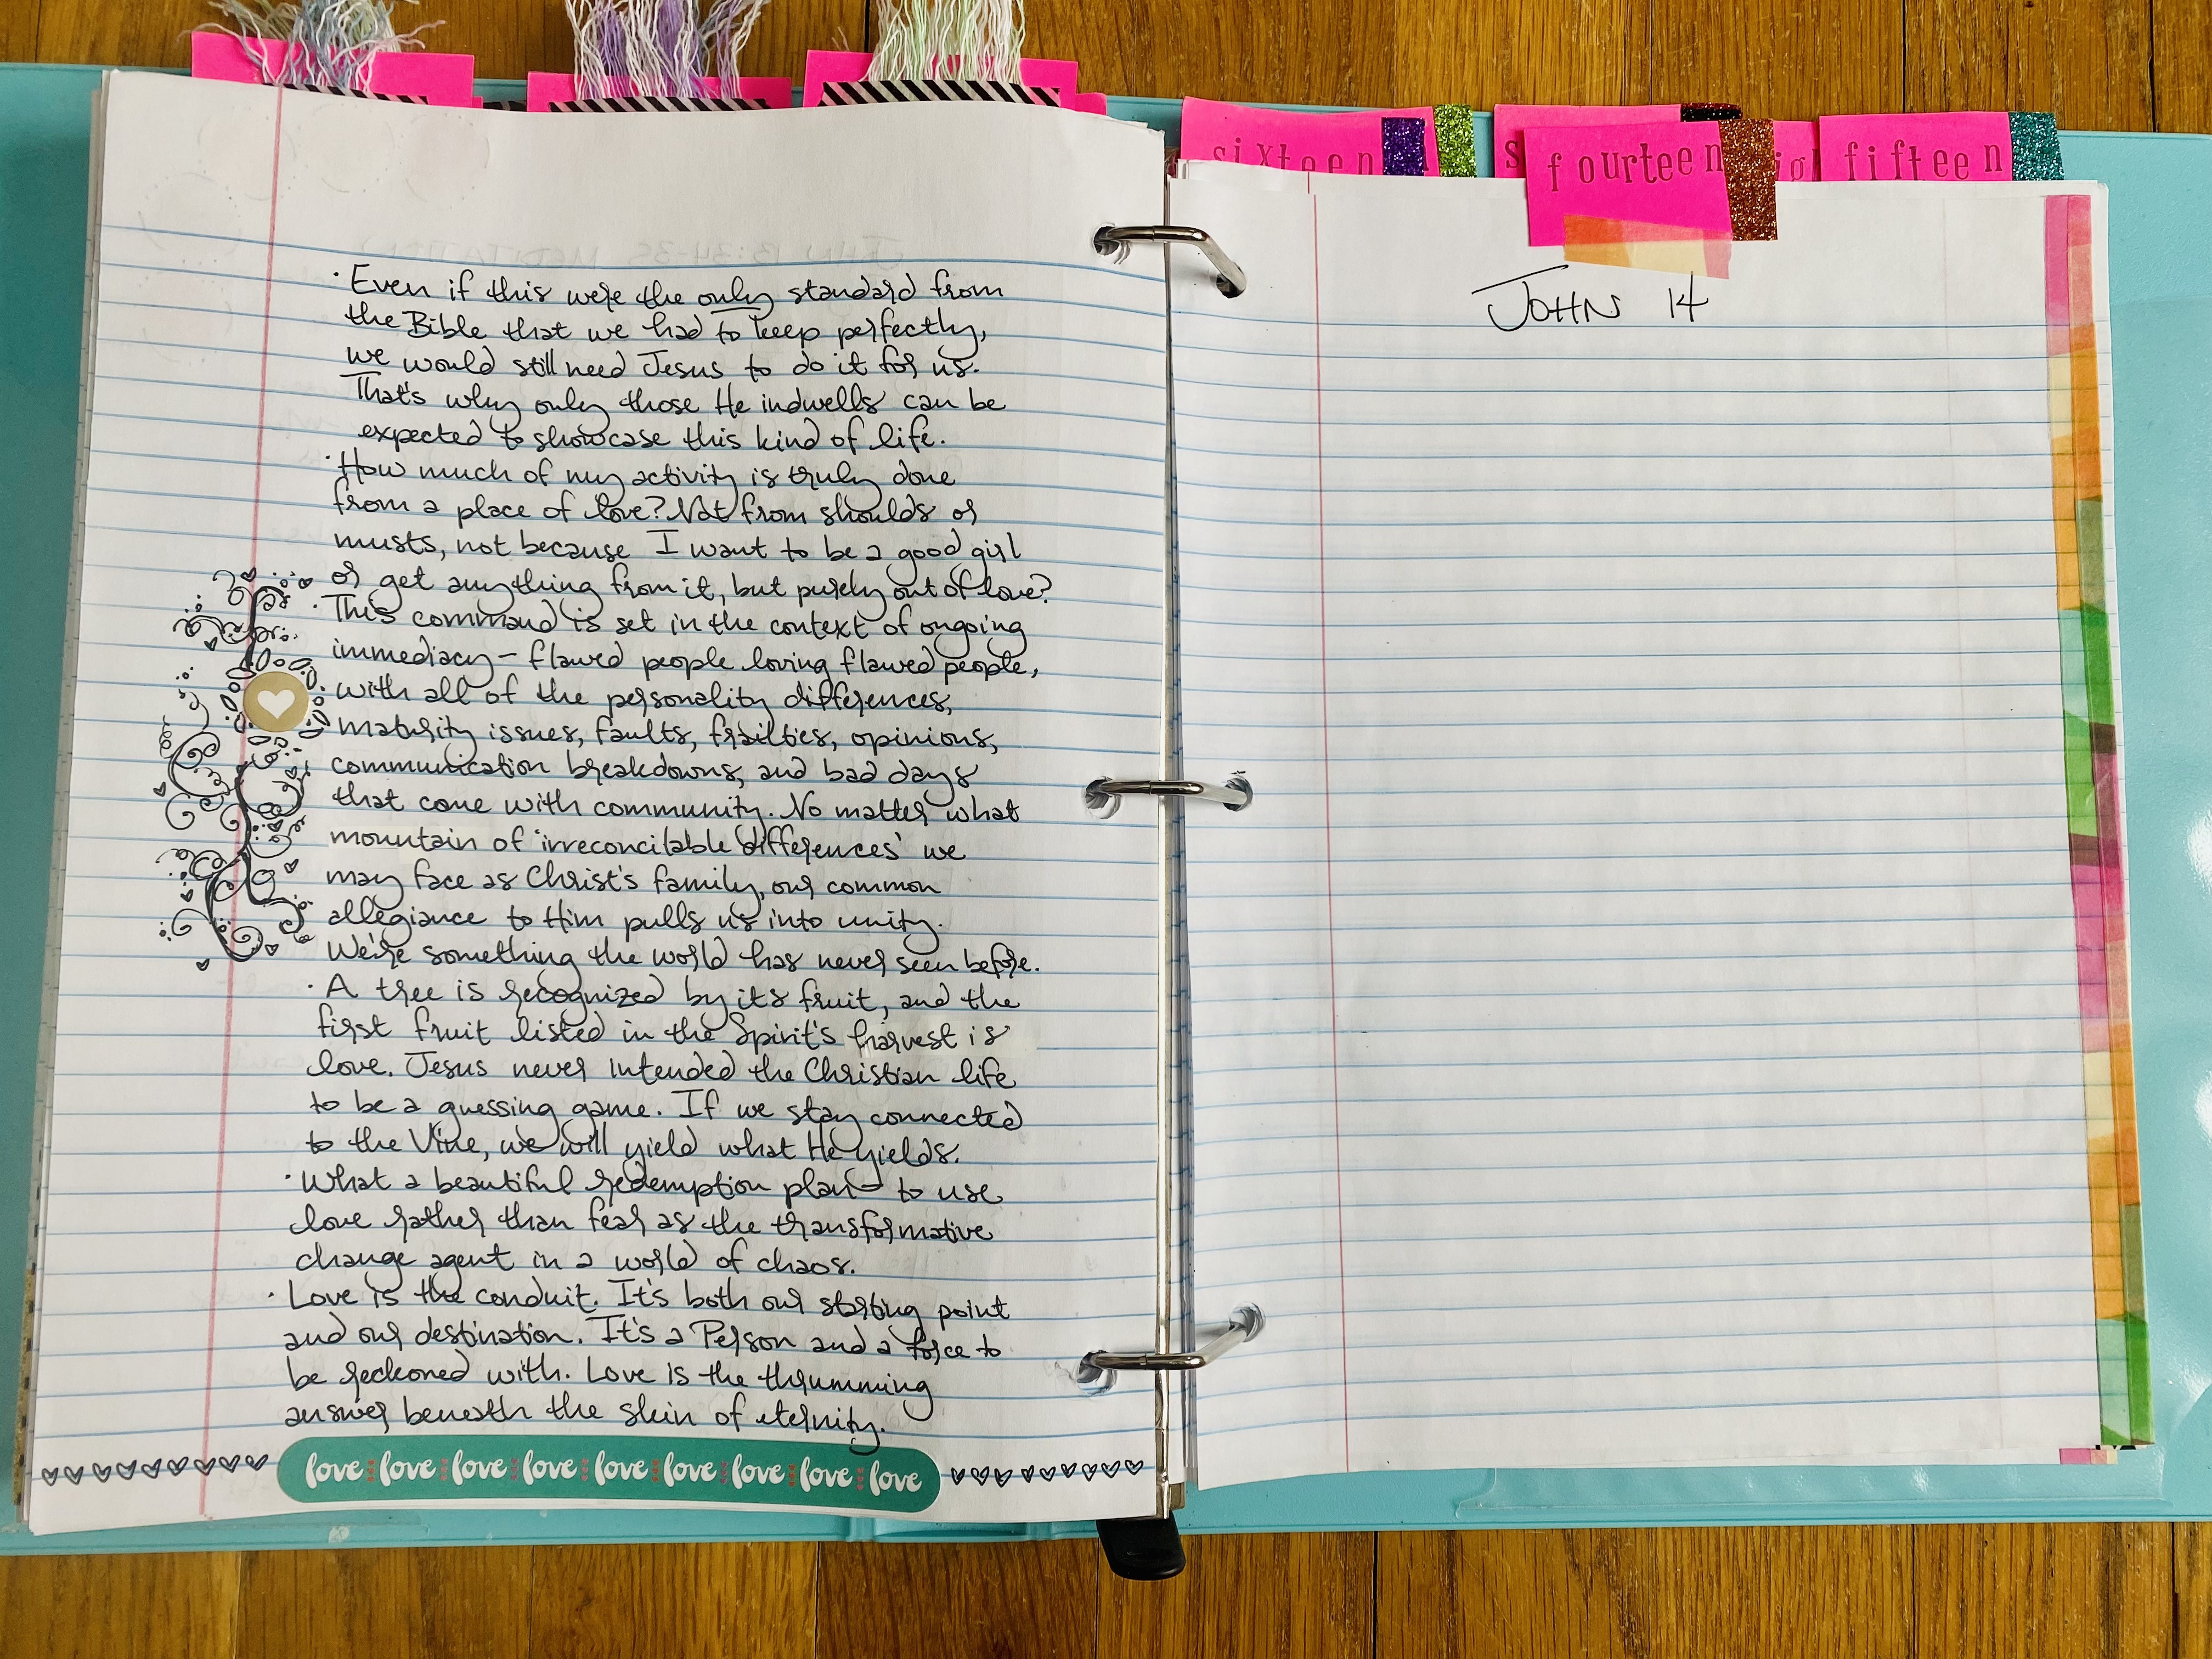 · Even if this were the only standard from
the Bible that we had to keep perfectly,
we would still need Jesus to do it for us.
That's why only those He indwells can be
expected to showcase this kind of life.
· How much of my activity is truly done
from a place of love? Not from shoulds or
musts, not because I want to be a good girl
or get anything from it, but purely out of love?
· This command is set in the context of ongoing
immediacy – flawed people loving flawed people,
with all of the personality differences,
maturity issues, faults, frailties, opinions,
communication breakdowns, and bad days
that come with community. No matter what
mountain of 'irreconcilable differences' we
may face as Christ's family, our common
allegiance to Him pulls us into unity.
We're something the world has never seen before.
· A tree is recognized by its fruit, and the
first fruit listed in the Spirit's harvest is
love. Jesus never intended the Christian life
to be a guessing game. If we stay connected
to the Vine, we will yield what He yields.
· What a beautiful redemption plan – to use
love rather than fear as the transformative
change agent in a world of chaos.
· Love is the conduit. It's both our starting point
and our destination. It's a Person and a force to
be reckoned with. Love is the thrumming
answer beneath the skin of eternity.
love love love love love love love love love
sixteen
fourteen
fifteen
JOHN 14